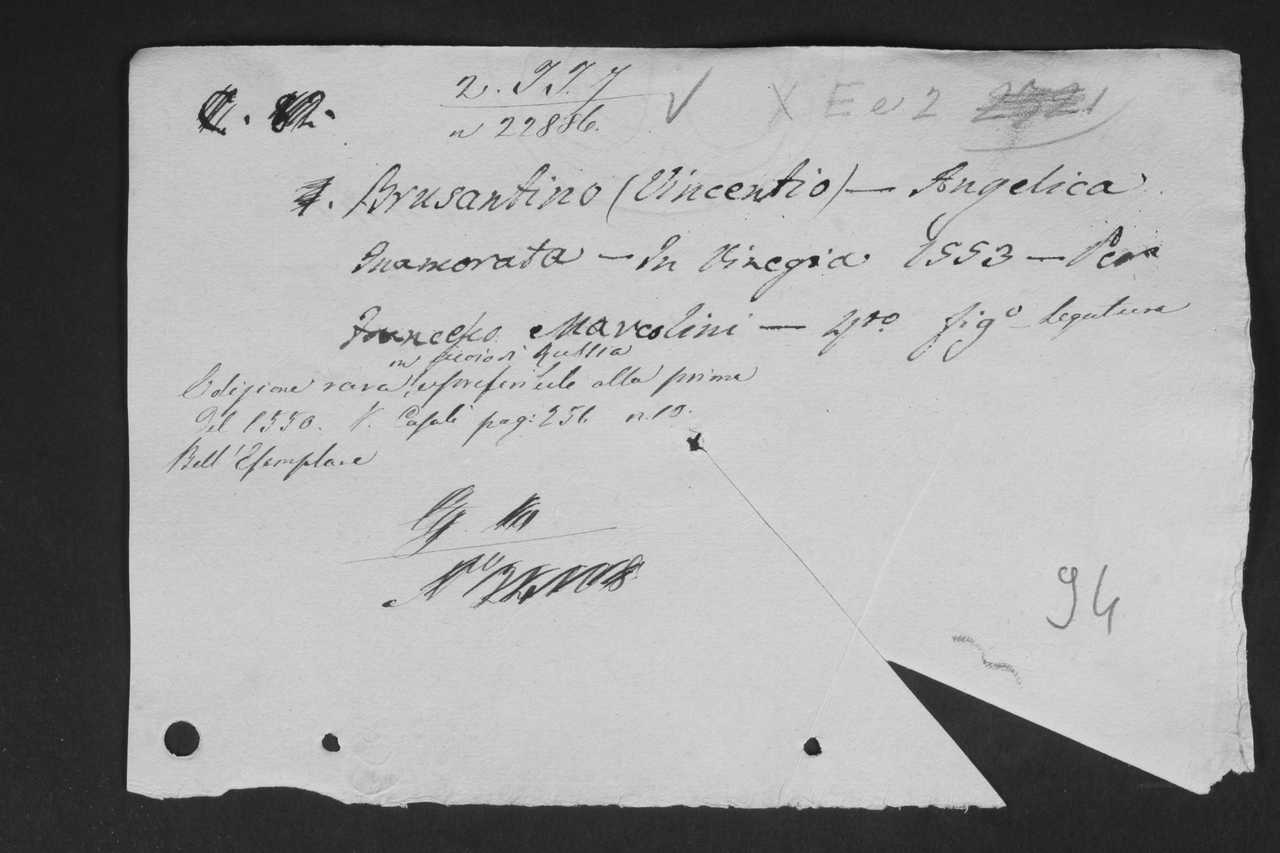 2. J. J. 7
n 22886.
X E e 2
Brusantino (Vincentio) — Angelica
Inamorata — In Vinegia 1553 — Per
Francesco Marcolini — 4to figo Legatura
in Russia
Edizione rara, e preferibile alla prima
del 1550. V. Casali pag: 256 n. 10.
Bell'Esemplare
94